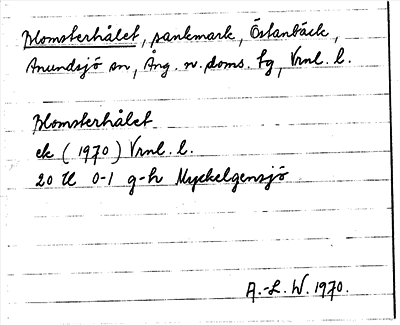 Blomsterhålet, sankmark, Östanbäck,
Anundsjö sn, Ång. n. doms. tg, Vrnl. l.
Blomsterhålet
ek (1970) Vrnl. l.
20 H 0-1 g-h Myckelgensjö
A.-L. W. 1970.